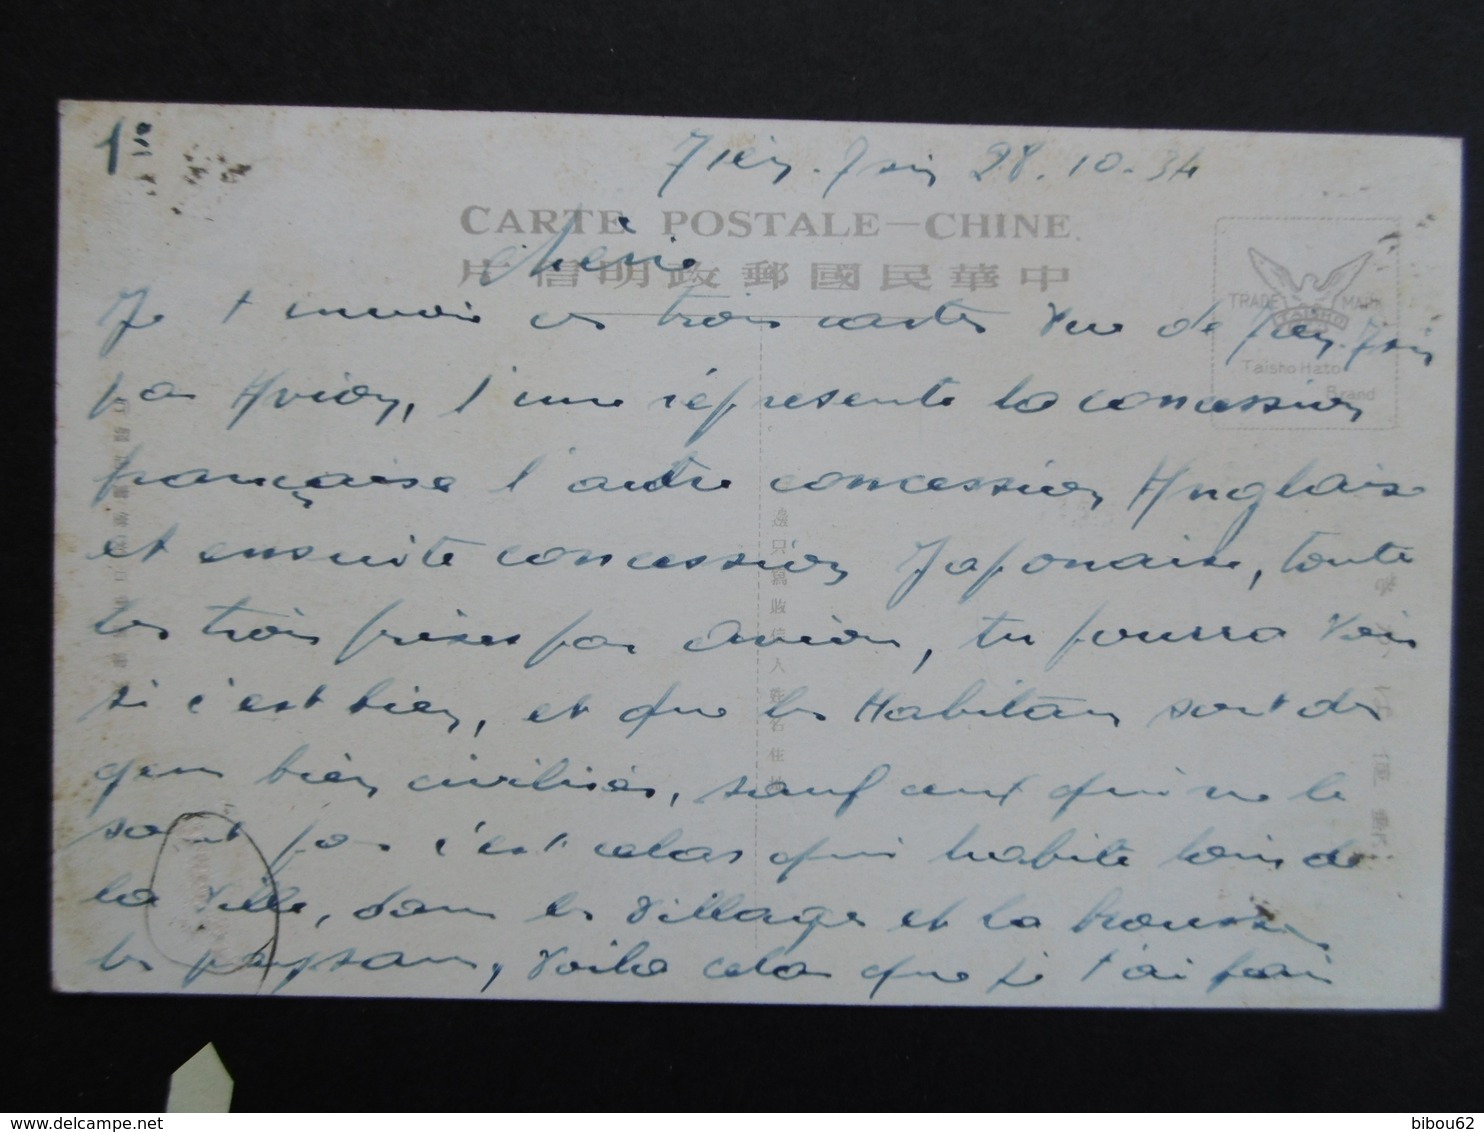 1
Tien-Tsin 28.10.34
CARTE POSTALE—CHINE
Chérie
片信明政郵國民華中
TRADE MARK
TAISHO
Taisho Hato
Brand
Je t envoie ces trois cartes Vue de Tien-Tsin
par Avion, l'une réprésente la concession
française l'autre concession Anglaise
et ensuite concession Japonaise, toute
les trois prises par Avion, tu pourra Voir
si c'est bien, et que les Habitans sont des
gens bien civilisés, sauf ceux qui ne le
sont pas c'est celas qui habite loin de
la Ville, dans les Villages et la brousse
les paysans, Voila celas que je t'ai fai
邊只寫收信人姓名住址
bibou62
delcampe.net